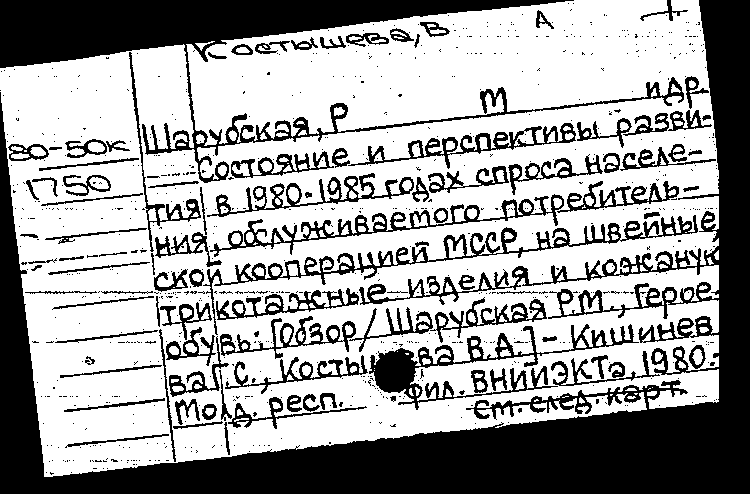 Костышева, В А
Шарубская, Р М и др.
80-50к Состояние и перспективы разви-
1750 тия в 1980-1985 годах спроса населе-
ния, обслуживаемого потребитель-
ской кооперацией МССР, на швейные,
трикотажные изделия и кожаную
обувь: [Обзор/Шарубская Р.М., Герое-
ва Г.С., Костышева В.А.] - Кишинев
Молд. респ. фил. ВНИИЭКТа, 1980.-
см. след. карт.